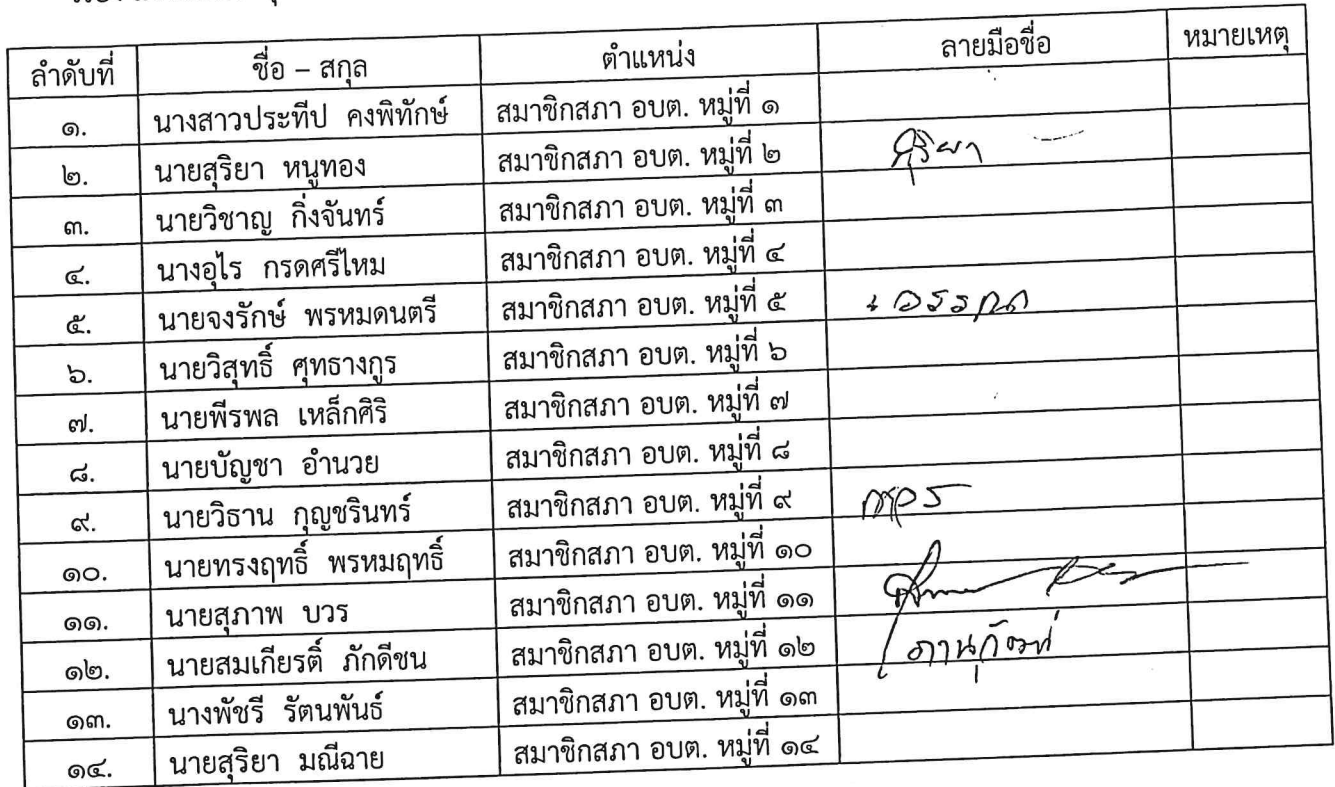 ลำดับที่ ชื่อ – สกุล ตำแหน่ง ลายมือชื่อ หมายเหตุ
๑. นางสาวประทีป คงพิทักษ์ สมาชิกสภา อบต. หมู่ที่ ๑
๒. นายสุริยา หนูทอง สมาชิกสภา อบต. หมู่ที่ ๒ สุริยา
๓. นายวิชาญ กิ่งจันทร์ สมาชิกสภา อบต. หมู่ที่ ๓
๔. นางอุไร กรดศรีไหม สมาชิกสภา อบต. หมู่ที่ ๔
๕. นายจงรักษ์ พรหมดนตรี สมาชิกสภา อบต. หมู่ที่ ๕
๖. นายวิสุทธิ์ ศุทธางกูร สมาชิกสภา อบต. หมู่ที่ ๖
๗. นายพีรพล เหล็กศิริ สมาชิกสภา อบต. หมู่ที่ ๗
๘. นายบัญชา อำนวย สมาชิกสภา อบต. หมู่ที่ ๘
๙. นายวิธาน กุญชรินทร์ สมาชิกสภา อบต. หมู่ที่ ๙
๑๐. นายทรงฤทธิ์ พรหมฤทธิ์ สมาชิกสภา อบต. หมู่ที่ ๑๐
๑๑. นายสุภาพ บวร สมาชิกสภา อบต. หมู่ที่ ๑๑
๑๒. นายสมเกียรติ์ ภักดีชน สมาชิกสภา อบต. หมู่ที่ ๑๒
๑๓. นางพัชรี รัตนพันธ์ สมาชิกสภา อบต. หมู่ที่ ๑๓
๑๔. นายสุริยา มณีฉาย สมาชิกสภา อบต. หมู่ที่ ๑๔